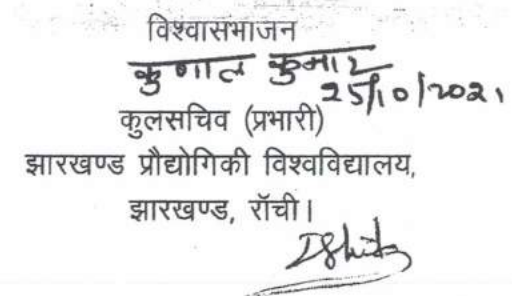 विश्वासभाजन
कुणाल कुमार
25/10/2021
कुलसचिव (प्रभारी)
झारखण्ड प्रौद्योगिकी विश्वविद्यालय,
झारखण्ड, राँची।